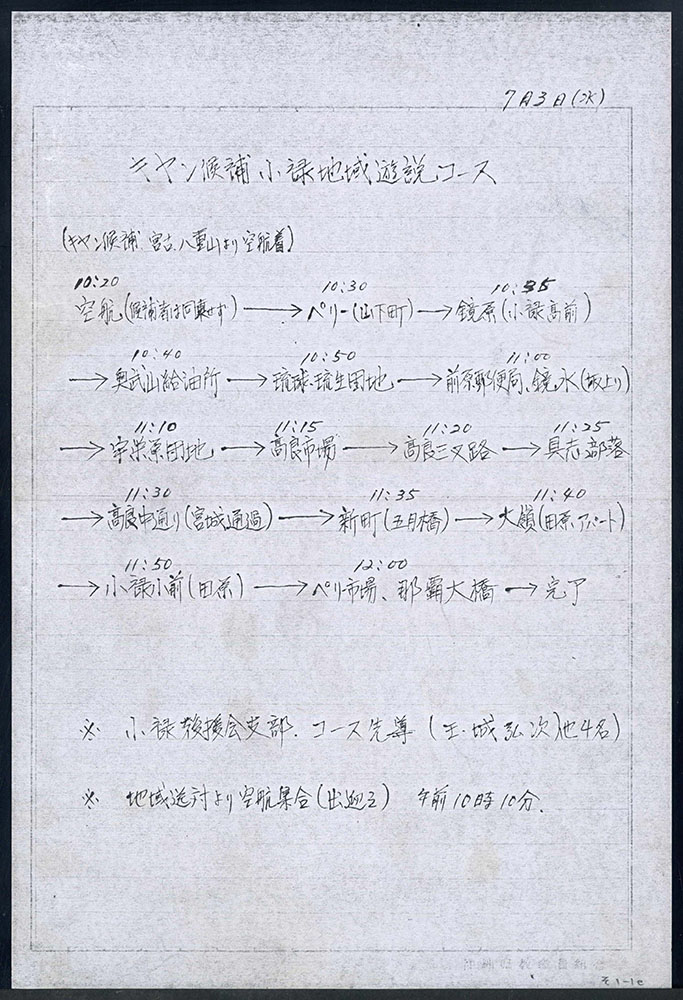 7月3日(水)
キヤン候補小禄地域遊説コース
(キヤン候補、宮古、八重山より空航着)
10:20 10:30 10:35
空航(候補者は同乗せず)→ペリー(山下町)→鏡原(小禄高前)
10:40 10:50 11:00
→奥武山給油所→琉球、琉生団地→前原郵便局、鏡水(坂上り)
11:10 11:15 11:20 11:25
→宇栄原団地→高良市場→高良三叉路→具志部落
11:30 11:35 11:40
→高良中通り(宮城通過)→新町(五月橋)→大嶺(田原アパート)
11:50 12:00
→小禄小前(田原)→ペリ市場、那覇大橋→完了
※ 小禄後援会支部、コース先導(玉城弘次)他4名)
※ 地域選対より空航集合(出迎え) 午前10時10分、